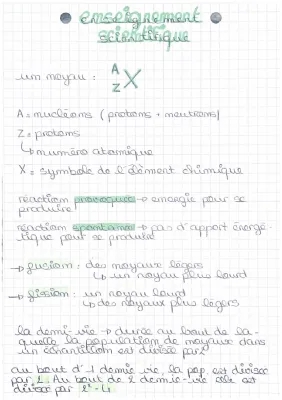 enseignement
scientifique
un noyau : A Z X
A = nucléons (protons + neutrons)
Z = protons
↳ numéro atomique
X = symbole de l'élément chimique
réaction provoquée → energie pour se
produire
réaction spontanée → pas d'apport énergé-
tique pour se produire
→ fusion : des noyaux légers
↳ un noyau plus lourd
→ fission : un noyau lourd
↳ des noyaux plus légers
la demi-vie → durée au bout de la-
quelle la population de noyaux dans
un échantillon est divisée par 2
au bout d'1 demie vie, la pop. est divisée
par 2. Au bout de 2 demie-vie elle est
divisée par 2² = 4